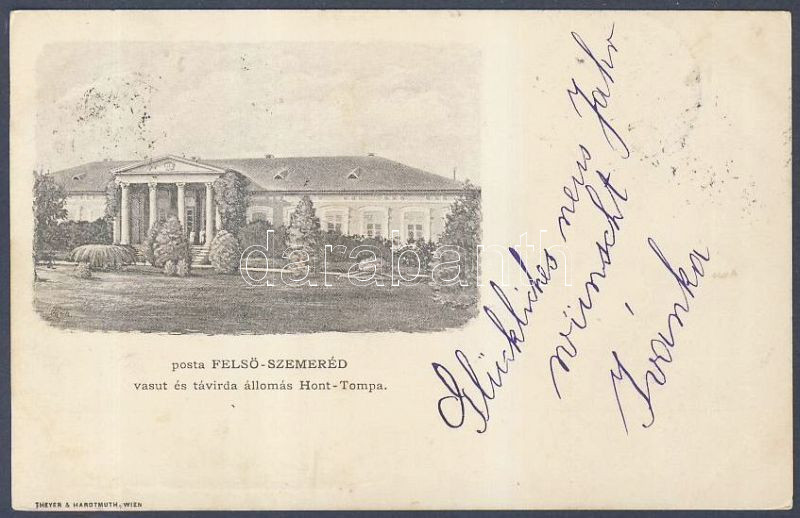 posta FELSÖ-SZEMERÉD
vasut és távirda állomás Hont-Tompa.
THEYER & HARDTMUTH, WIEN
Glückliches neus Jahr
wünscht
Ivánka
darabanth